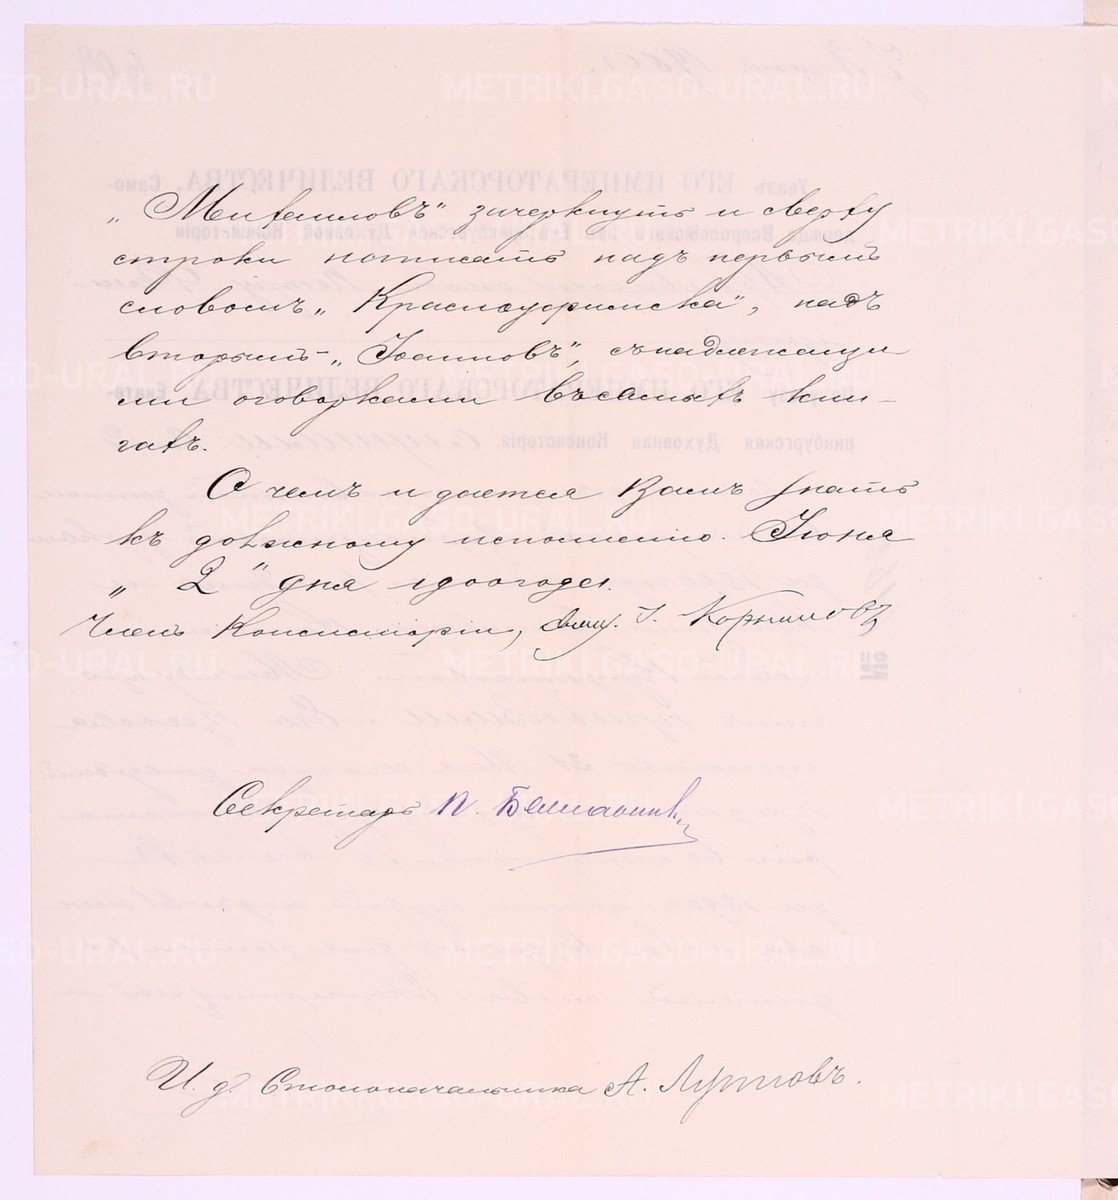 „Михаиловъ" зачеркнуть и сверху
строки написать надъ первымъ
словомъ „Красноуфимска", надъ
вторымъ - „Іоанновъ", съ надлежащи
ми оговорками въ самыхъ кни-
гахъ.
О чемъ и дается Вамъ знать
къ должному исполненію. Іюня
„2" дня 1900 года.
Членъ Консисторіи, Свящ. І. Корниловъ
Секретарь П.
И. д. Столоначальника А. Луптовъ.
METRIKI.GASO-URAL.RU